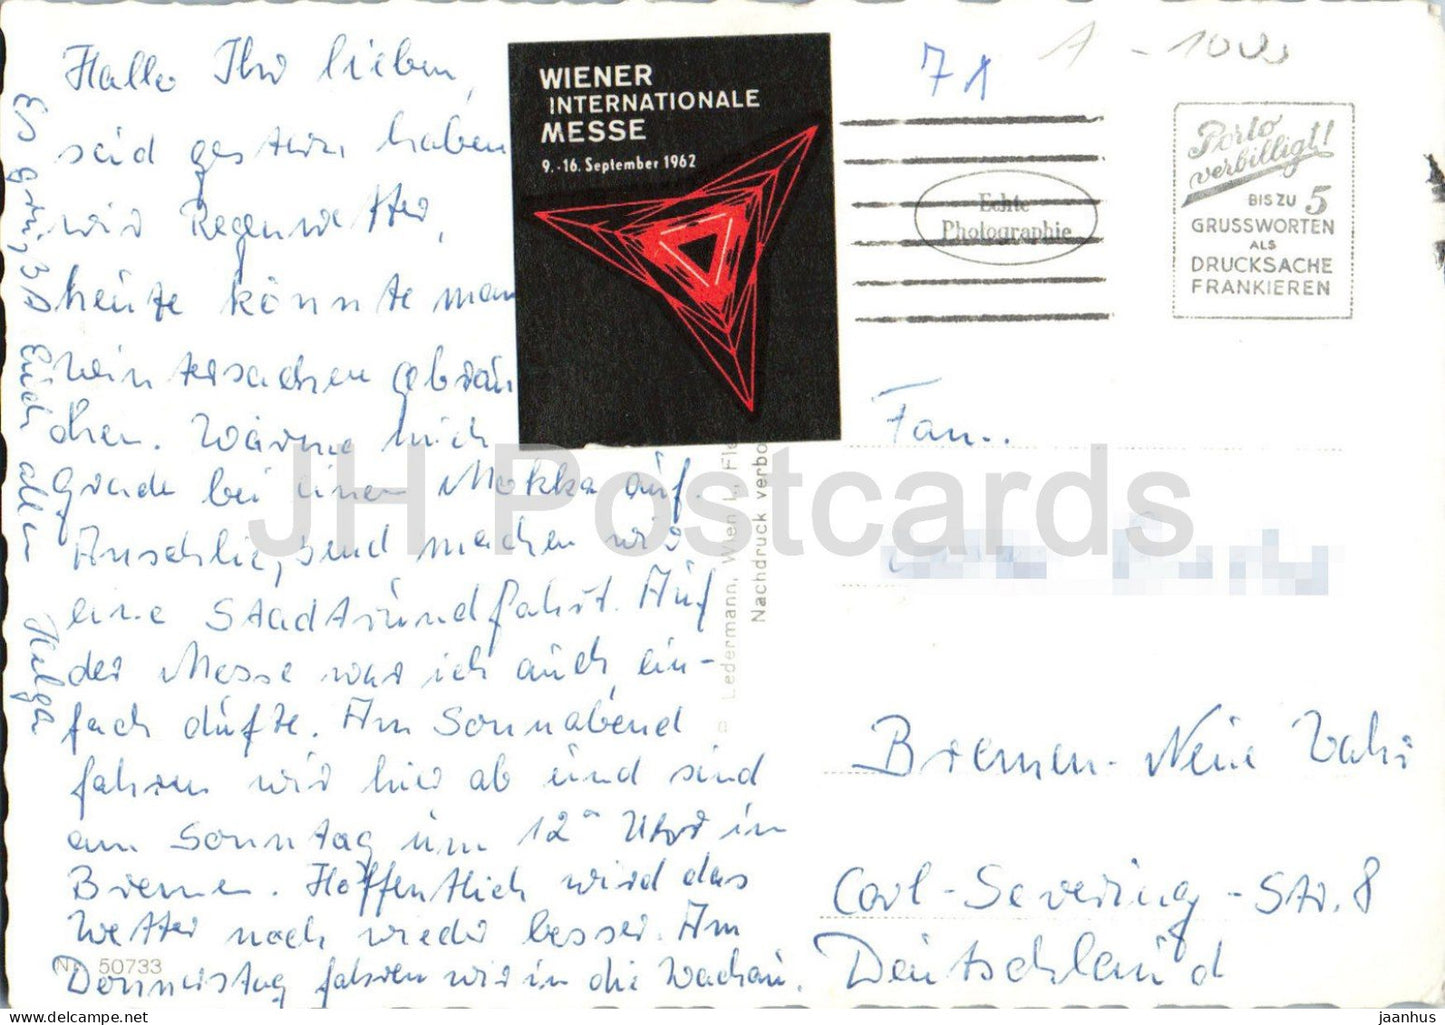 Hallo Ihr lieben,
seid gestern haben
wir Regenwetter,
heute könnte man
Wintersachen gebrau
chen. Wärme mich
grade bei einen Mokka auf.
Anschließend machen wir
eine Stadtrundfahrt. Auf
der Messe war ich auch, ein-
fach dufte. Am Sonnabend
fahren wir hier ab und sind
am Sonntag um 12 Uhr in
Bremen. Hoffentlich wird das
Wetter noch wieder besser. Am
Donnerstag fahren wir in die Wachau.
Es grüßt Euch allen Helga
WIENER
INTERNATIONALE
MESSE
9.-16. September 1962
Echte
Photographie
Porto
verbilligt!
BIS ZU 5
GRUSSWORTEN
ALS
DRUCKSACHE
FRANKIEREN
Fam.
Bremen-Neue Vahr
Carl-Severing-Str. 8
Deutschland
Ledermann, Wien I., Fle
Nachdruck verbo
Nr. 50733
JH Postcards
jaanhus